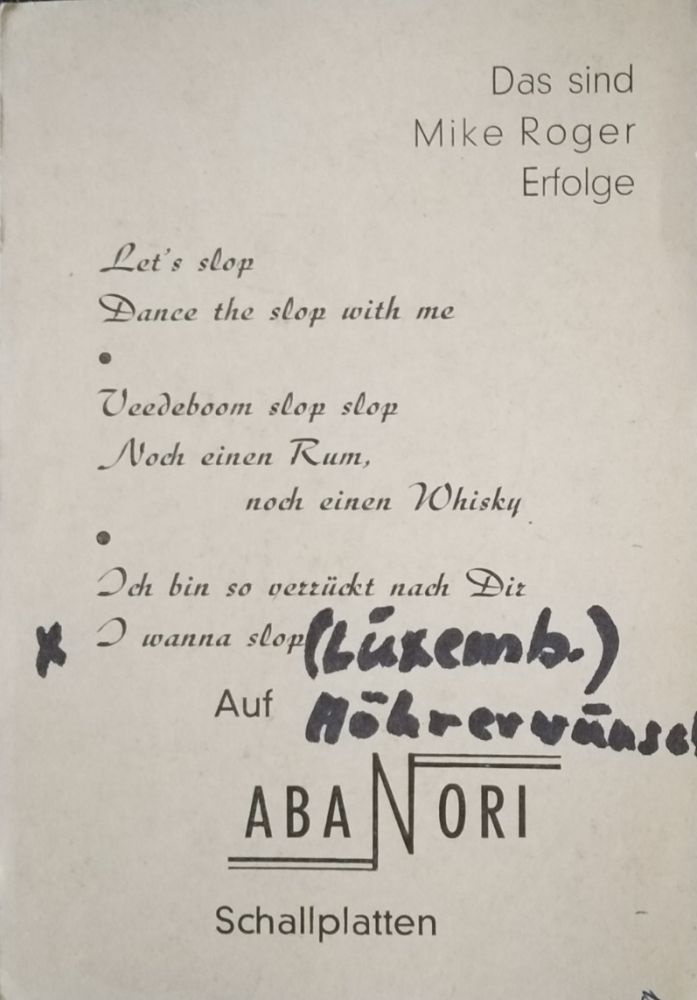 Das sind
Mike Roger
Erfolge
Let's slop
Dance the slop with me
•
Veedeboom slop slop
Noch einen Rum,
noch einen Whisky
•
Ich bin so verrückt nach Dir
x I wanna slop (Luxemb.)
Auf Hörerwünsc
ABANORI
Schallplatten